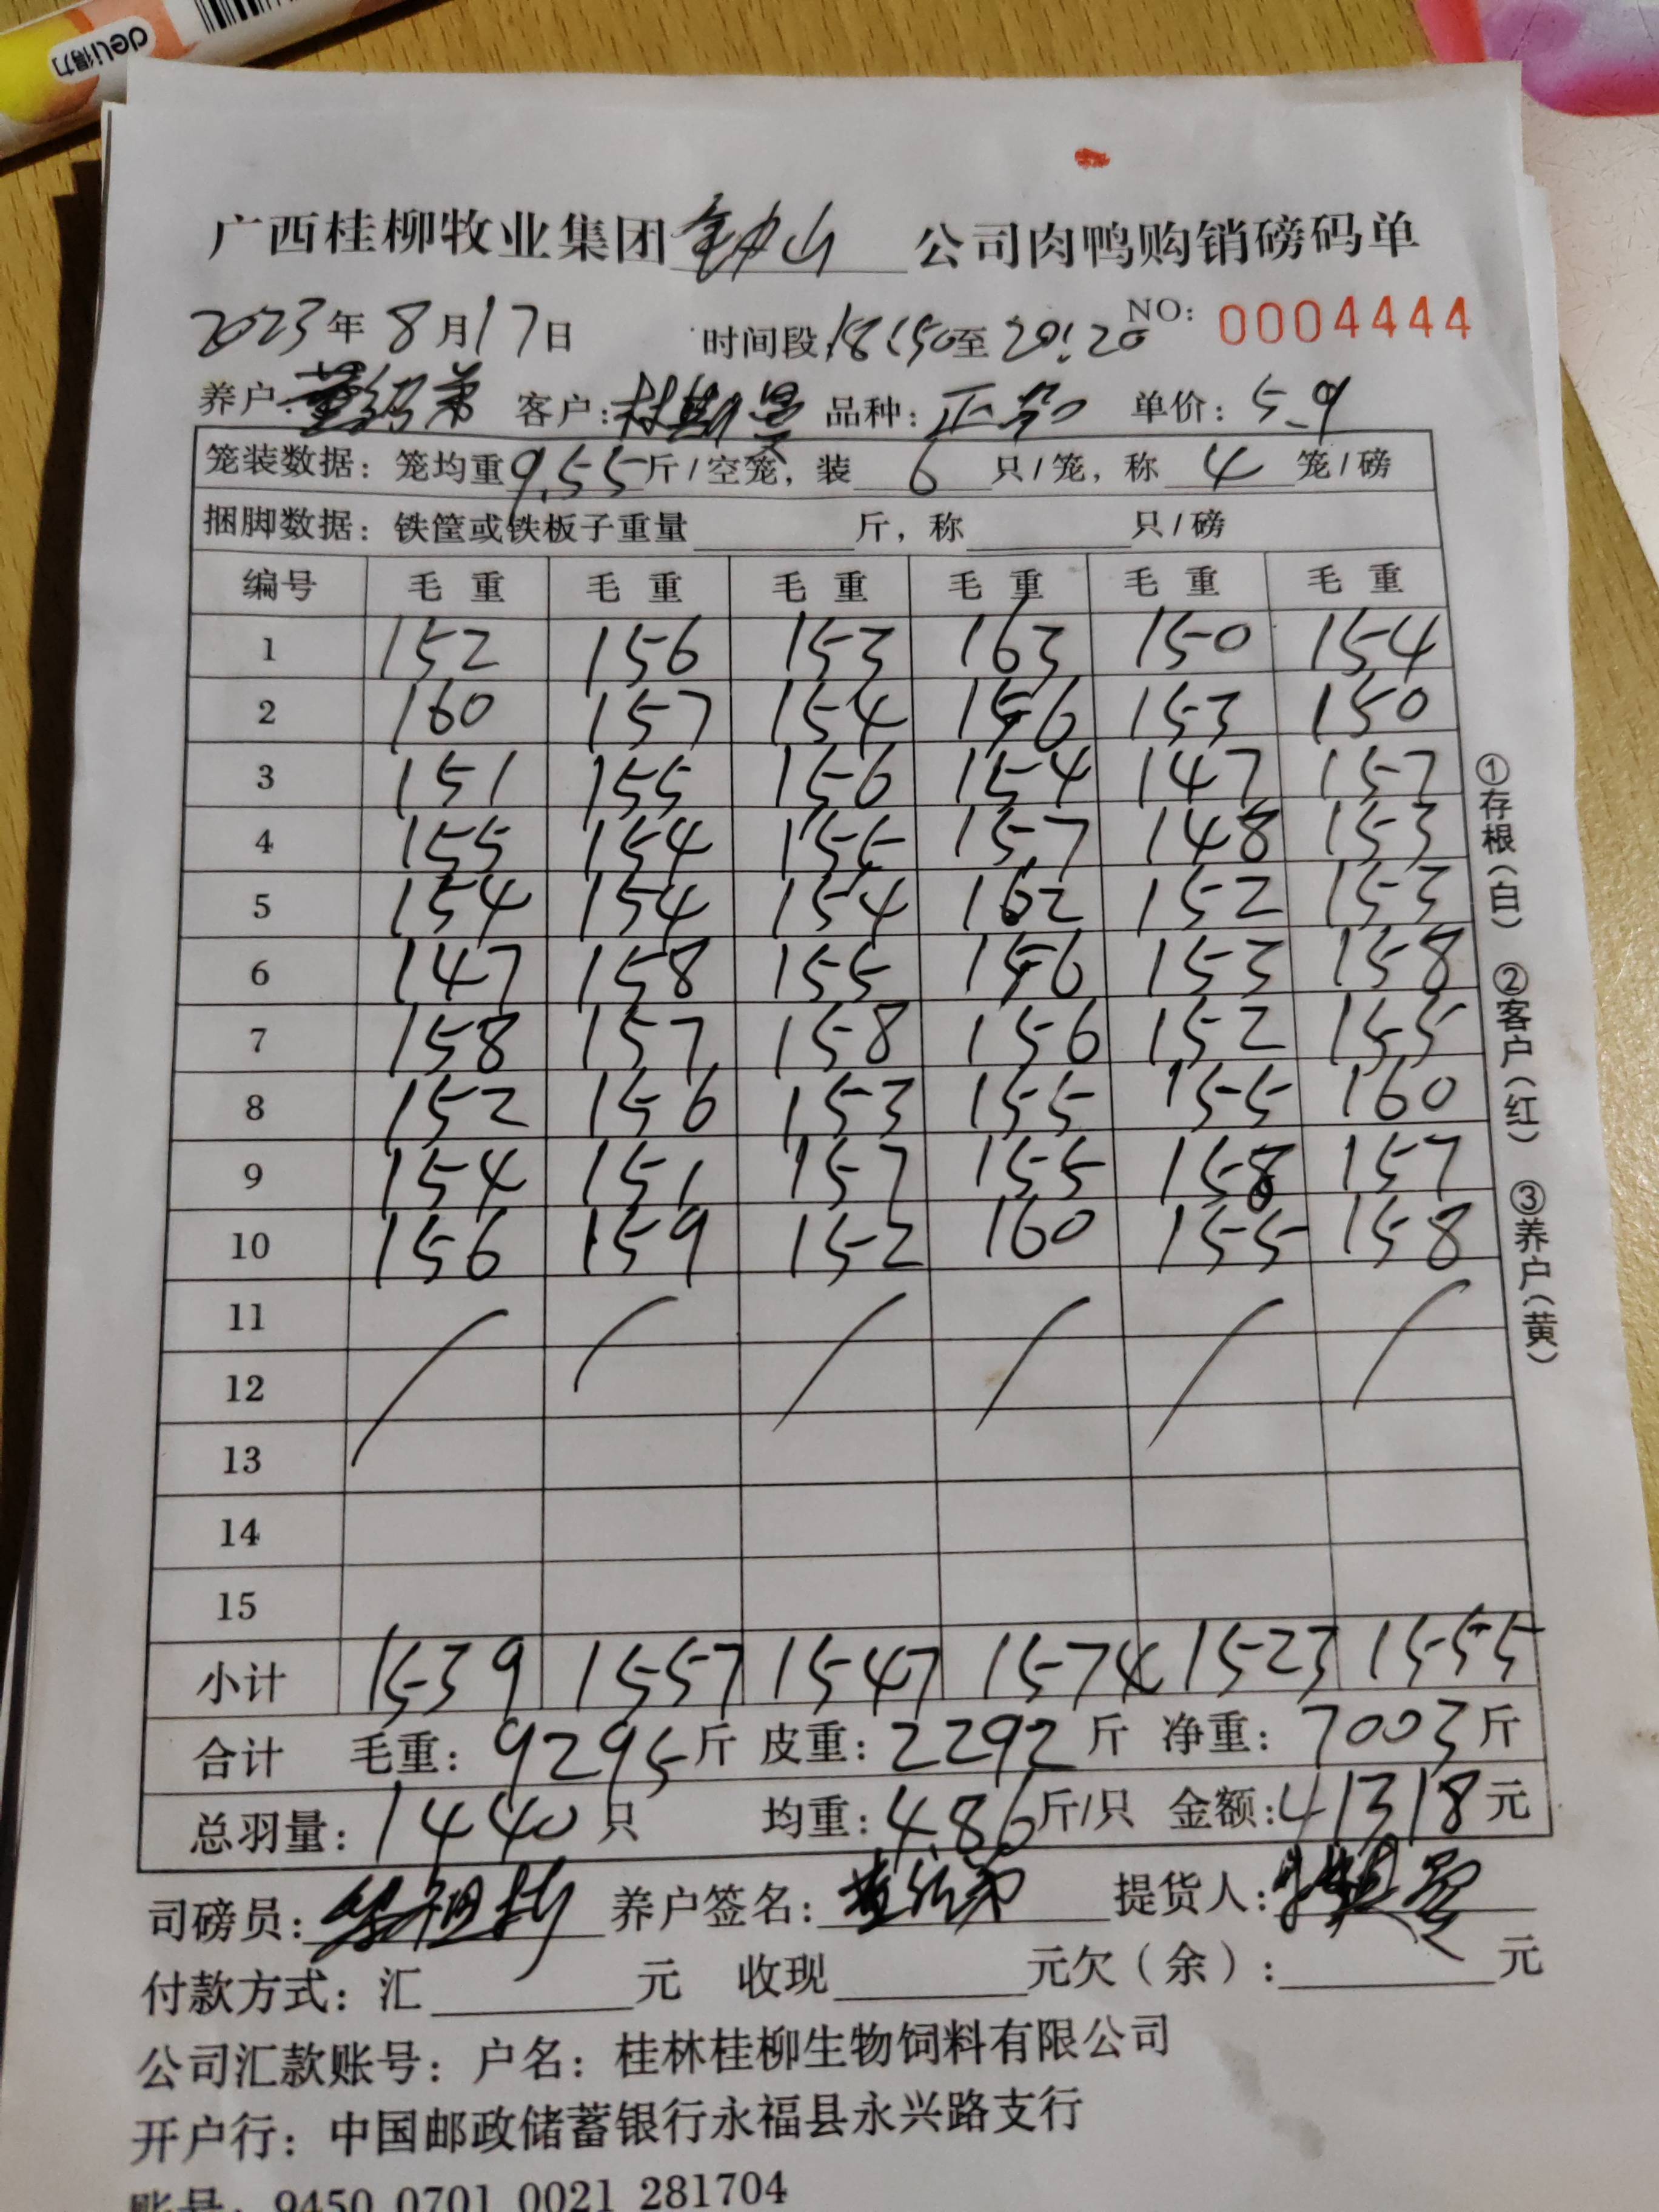 deli得力
广西桂柳牧业集团 钟山 公司肉鸭购销磅码单
2023年 8月17日 时间段:18:50至20:20 NO: 0004444
养户: 客户: 品种: 单价: 5.9
笼装数据: 笼均重9.55斤/空笼, 装 6 只/笼, 称 4 笼/磅
捆脚数据: 铁筐或铁板子重量 斤, 称 只/磅
编号 毛重 毛重 毛重 毛重 毛重 毛重
1 152 156 153 163 150 154
2 160 157 154 156 153 150
3 151 155 156 154 147 157
4 155 154 155 157 148 153
5 154 154 154 162 152 153
6 147 158 155 156 153 158
7 158 157 158 156 152 155
8 152 156 153 155 155 160
9 154 151 157 155 158 157
10 156 159 152 160 155 158
11
12
13
14
15
小计 1539 1557 1547 1574 1523 1555
合计 毛重: 9295斤 皮重: 2292斤 净重: 7003斤
总羽量: 1440只 均重: 4.86斤/只 金额: 41318元
司磅员: 养户签名: 提货人:
付款方式: 汇 元 收现 元欠(余): 元
公司汇款账号: 户名: 桂林桂柳生物饲料有限公司
开户行: 中国邮政储蓄银行永福县永兴路支行
账号: 9450 0701 0021 281704
①存根(白) ②客户(红) ③养户(黄)